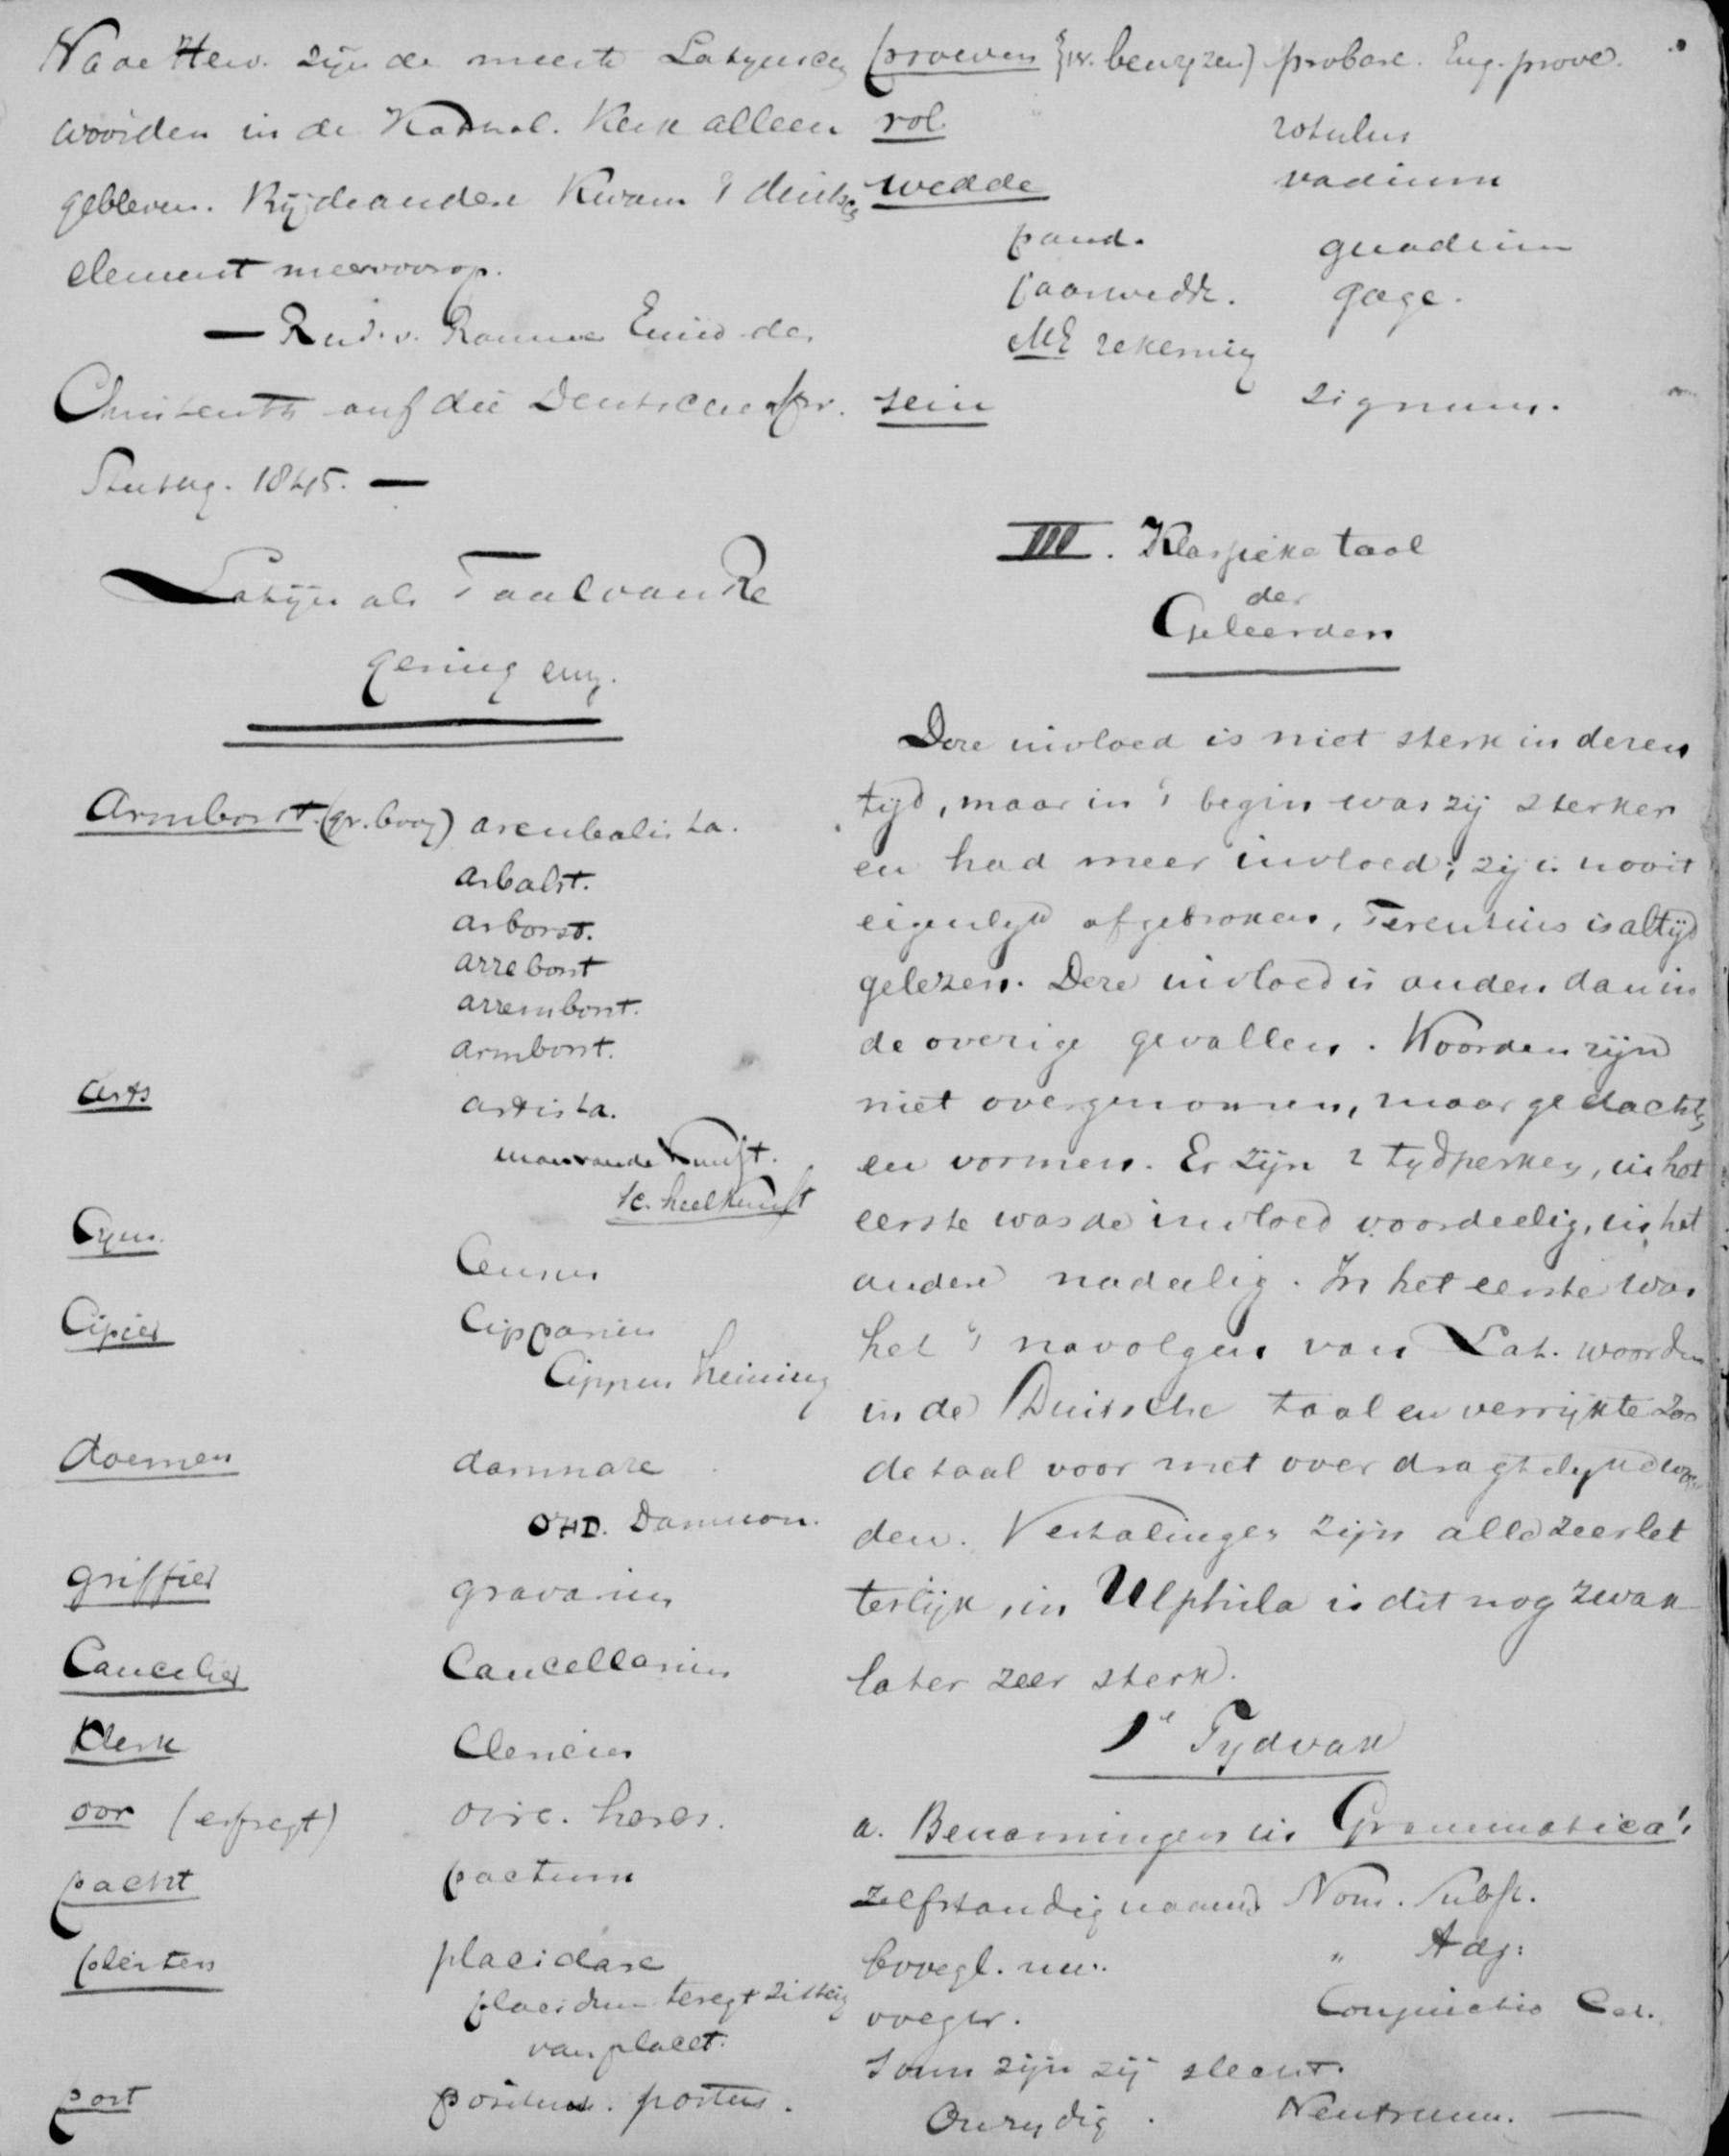 Na de Herv. zijn de meeste Latynsche
woorden in de Kathol. Kerk alleen
gebleven. Bij de andere kwam 't duitsch
element meer voorop.
— Rud. v. Raumer Einw. des
Christenth auf die Deutsche Spr.
Stuttg. 1845. —
Latijn als Taal van Re
gering enz.
Armborst. (gr. boog) arcubalista.
arbalst.
arborst.
arreborst
arremborst.
armborst.
Arts artista.
man van de kunst.
sc. heelkunst
Cijns Census
Cipier Cipparius
Cippus heining
doemen damnare
OHD. Damnon.
griffier gravarius
Cancelier Cancellarius
Klerk Clericus
oor (erfregt) oire. heres.
pacht pactum
pleiten placidare
placidum teregtzitting
van placet.
post positus. postus.
(proeven (pr. bewyzen) probare. Eng. prove.
rol rotulus
wedde vadium
pand. guadium
jaarwedde. gage.
ME rekening
sein signum.
III. Klassieke taal
der
Geleerden
Deze invloed is niet sterk in dezen
tijd, maar in 't begin was zij sterker
en had meer invloed; zij is nooit
eigenlijk afgebroken, Terentius is altijd
gelezen. Deze invloed is anders dan in
de overige gevallen. Woorden zijn
niet overgenomen, maar gedachten
en vormen. Er zijn 2 tydperken, in het
eerste was de invloed voordeelig, in het
andere nadeelig. In het eerste was
het 't navolgen van Lat. woorden
in de Duitsche taal en verrijkte zoo
de taal voor met overdragtelyke woor
den. Vertalingen zijn alle zeer let
terlijk, in Ulphila is dit nog zwak
later zeer sterk.
1e Tydvak
a. Benamingen in Grammatica's
zelfstandig naamw. Nom. Subst.
bvoegl. nw. " Adj.
voegw. Conjunctio
Soms zijn zij slecht.
Onzydig. Neutrum. —